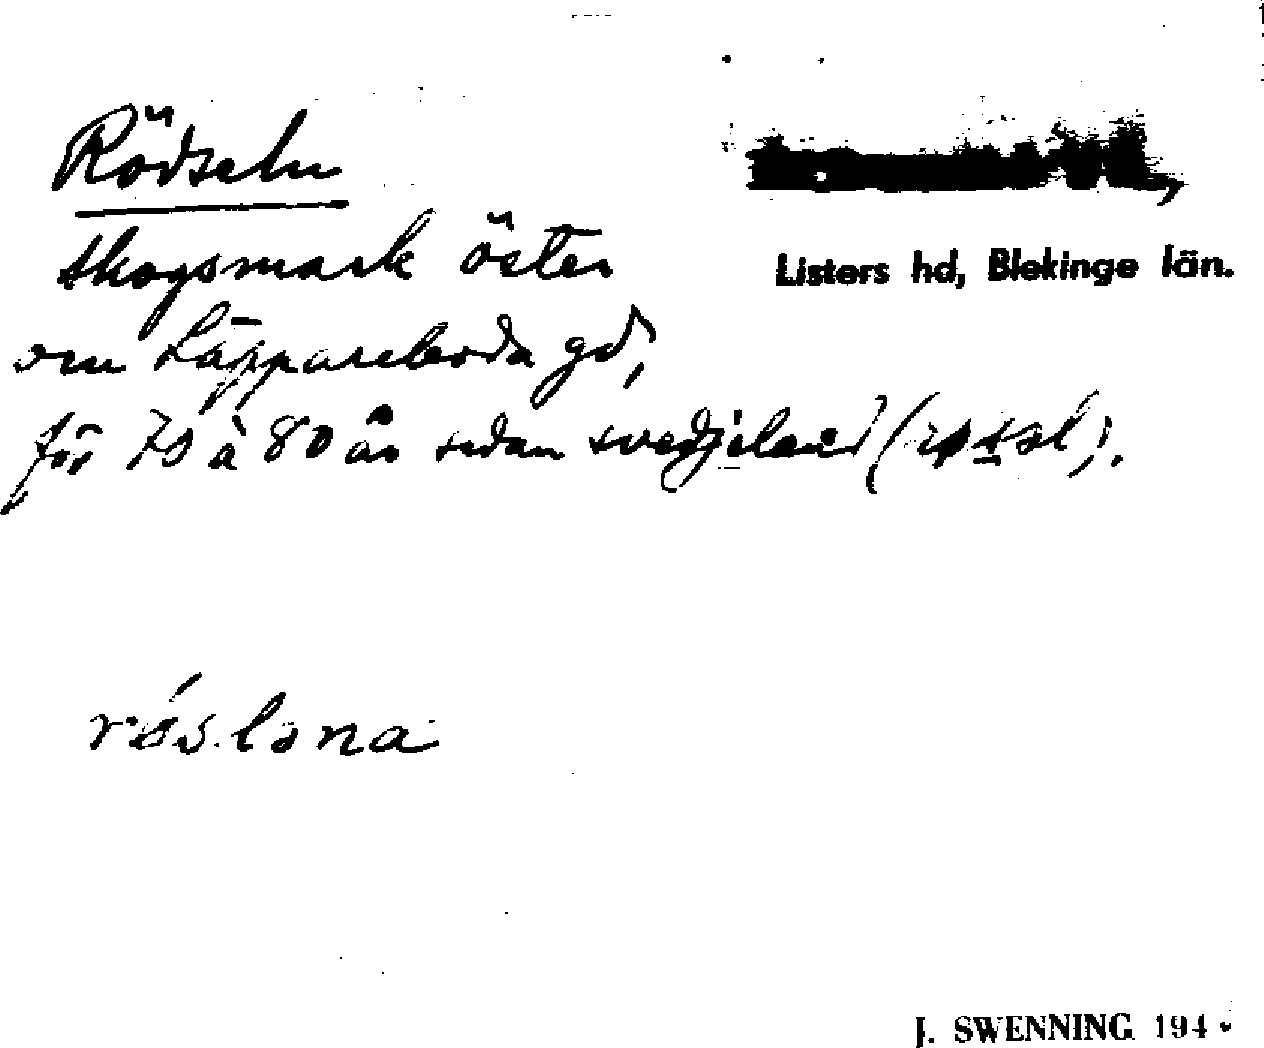 Rödseln
skogsmark öster
om Läppareboda gd,
för 70 à 80 år sedan svedjeland
Listers hd, Blekinge län.
röslona
J. SWENNING 194